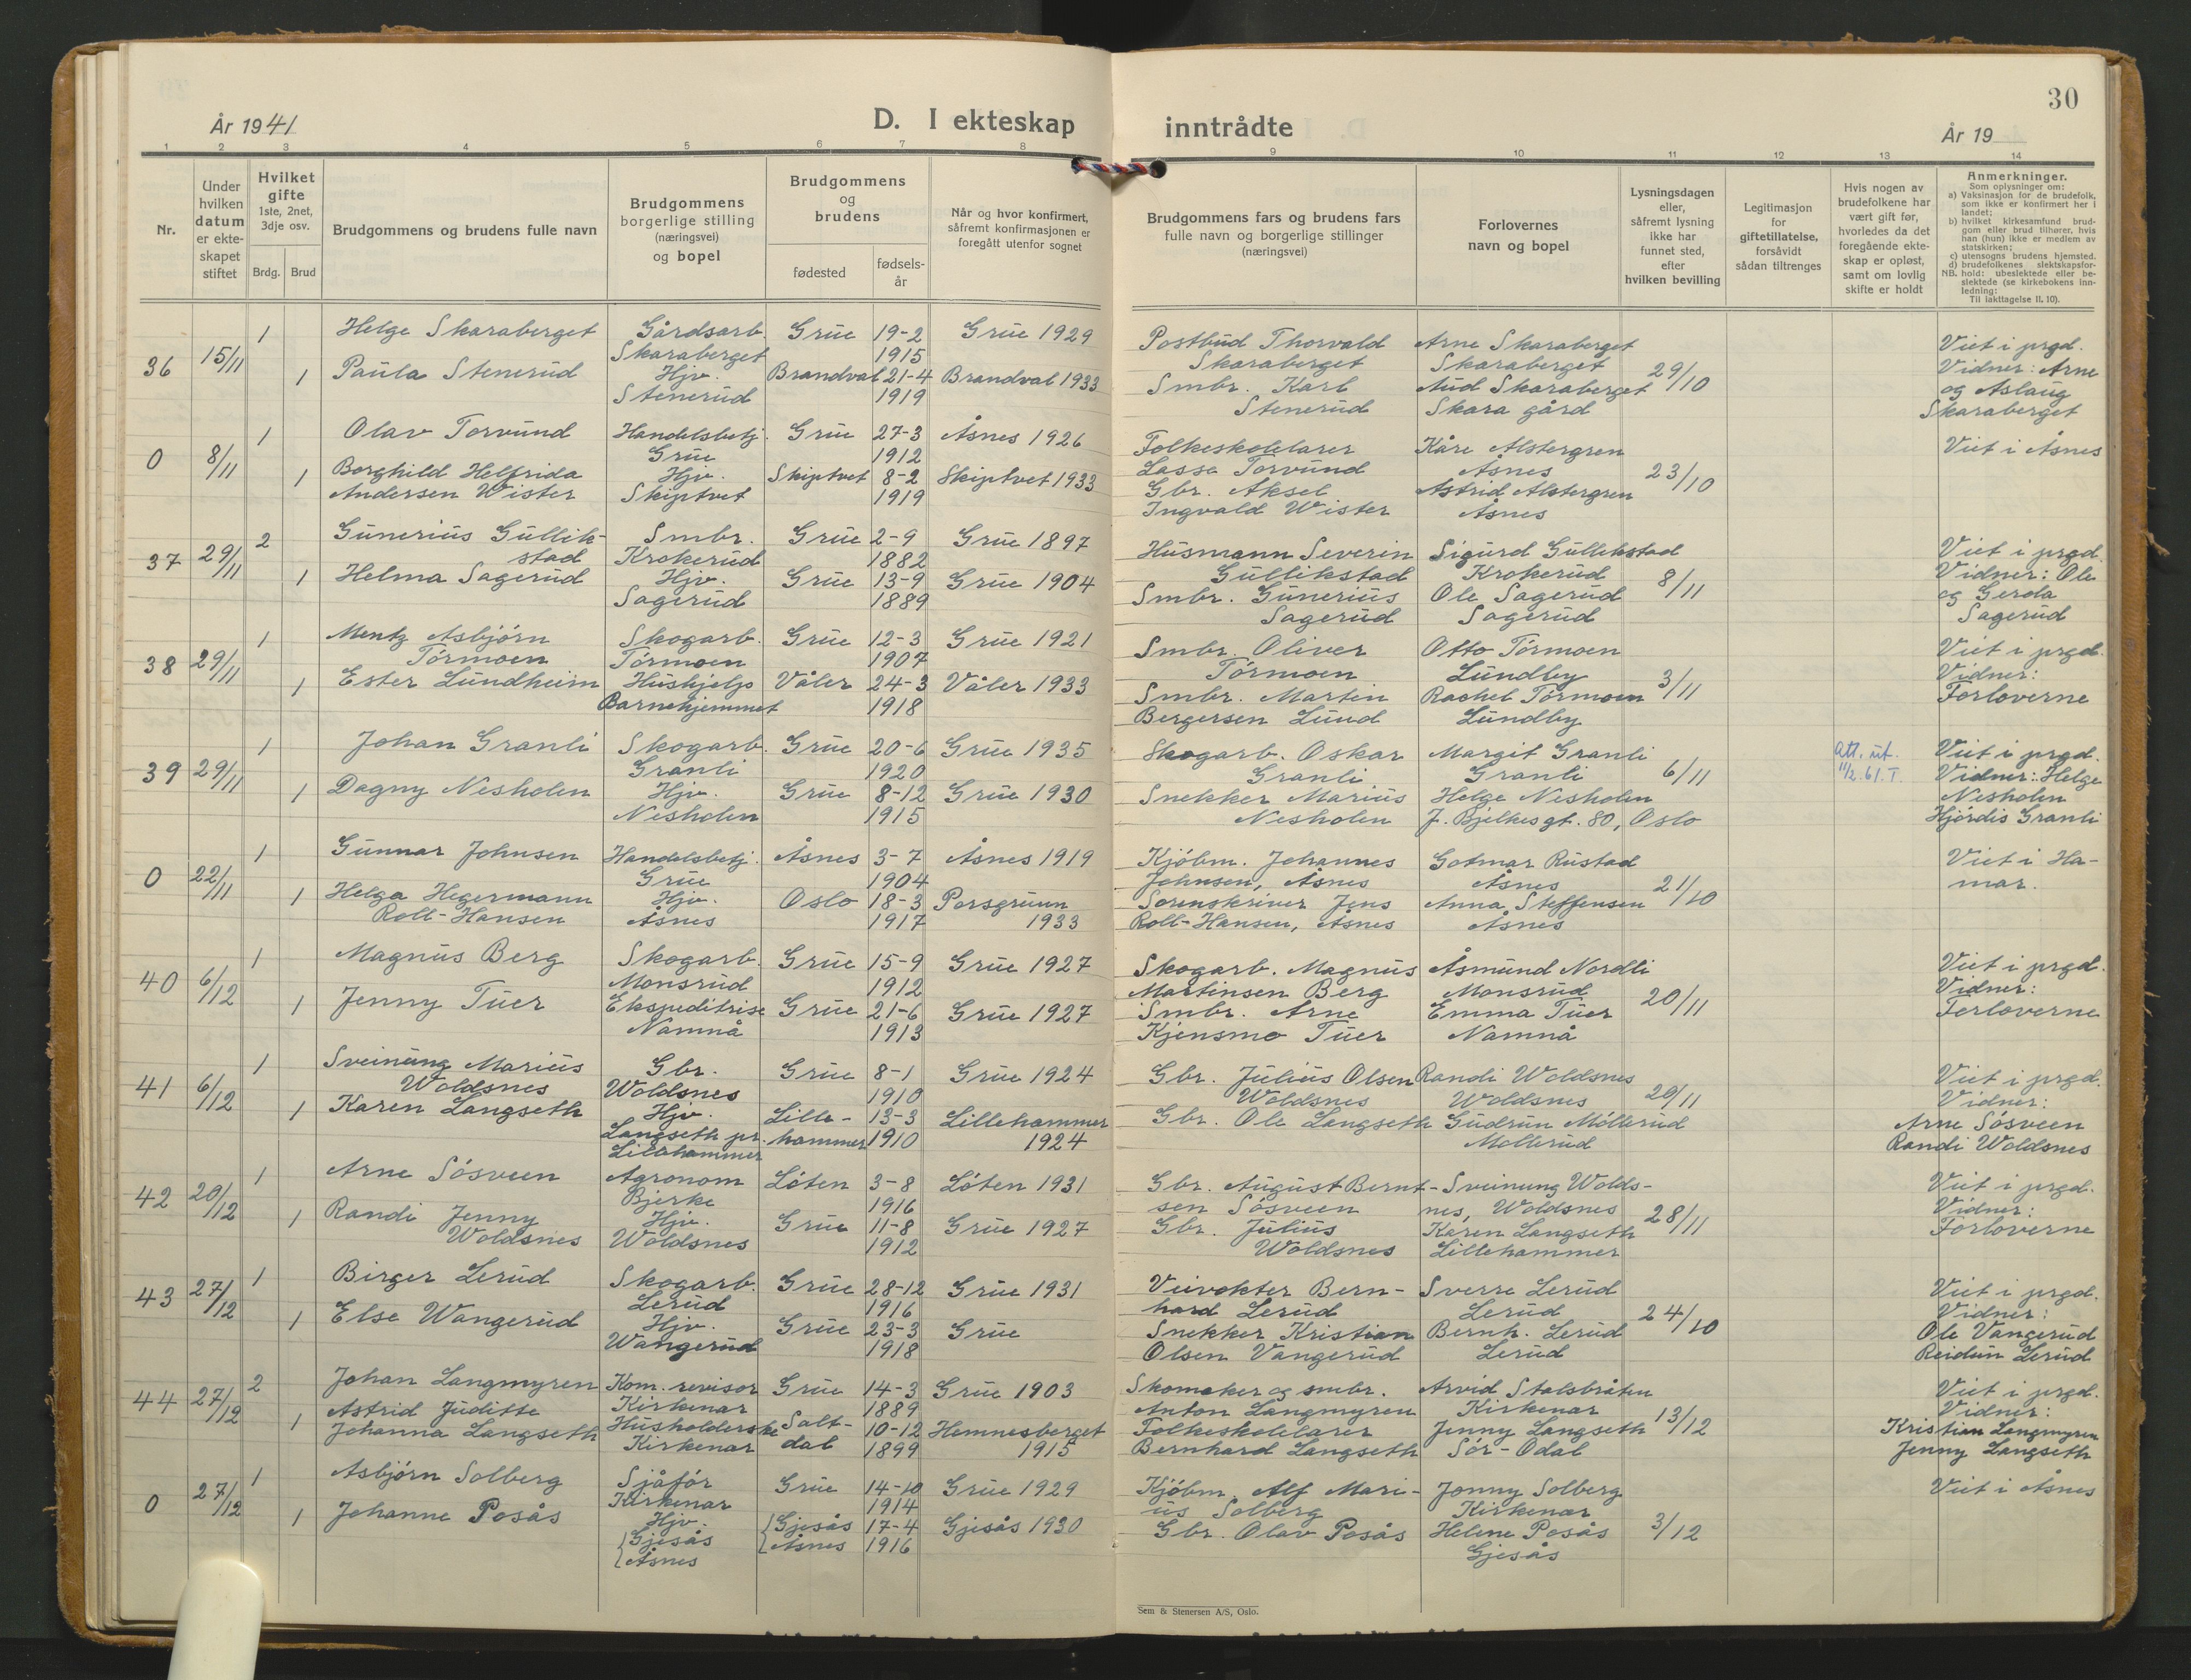 30
År 1941
D. I ekteskap inntrådte
År 19
1 2 3 4 5 6 7 8 9 10 11 12 13 14
Nr.
Under hvilken datum er ekteskapet stiftet
Hvilket gifte 1ste, 2net, 3dje osv.
Brdg. Brud
Brudgommens og brudens fulle navn
Brudgommens borgerlige stilling (næringsvei) og bopel
Brudgommens og brudens
fødested
fødselsår
Når og hvor konfirmert, såfremt konfirmasjonen er foregått utenfor sognet
Brudgommens fars og brudens fars fulle navn og borgerlige stillinger (næringsvei)
Forlovernes navn og bopel
Lysningsdagen eller, såfremt lysning ikke har funnet sted, efter hvilken bevilling
Legitimasjon for giftetillatelse, forsåvidt sådan tiltrenges
Hvis nogen av brudefolkene har vært gift før, hvorledes da det foregående ekteskap er opløst, samt om lovlig skifte er holdt
Anmerkninger.
Som oplysninger om:
a) Vaksinasjon for de brudefolk, som ikke er konfirmert her i landet;
b) hvilket kirkesamfund brudgom eller brud tilhører, hvis han (hun) ikke er medlem av statskirken;
c) utensogns brudens hjemsted.
d) brudefolkenes slektskapsforhold: ubeslektede eller beslektede (se kirkebokens innledning:
NB. Til iakttagelse II. 10).
36 15/11 1 Helge Skaraberget Gårdsarb. Skaraberget Grue 19-2 1915 Grue 1929 Postbud Thorvald Skaraberget Arne Skaraberget Skaraberget 29/10 Viet i prgd. Vidner: Arne og Aslaug Skaraberget
1 Paula Stenerud Hjv. Stenerud Brandval 21-4 1919 Brandval 1933 Smbr. Karl Stenerud Aud Skaraberget Skara gård
0 8/11 1 Olav Torvund Handelsbetj. Grue Grue 27-3 1912 Åsnes 1926 Folkeskolelærer Lasse Torvund Kåre Alstergren Åsnes 23/10 Viet i Åsnes
1 Borghild Helfrida Andersen Wister Hjv. Skiptvet Skiptvet 8-2 1919 Skiptvet 1933 Gbr. Aksel Ingvald Wister Astrid Alstergren Åsnes
37 29/11 2 Gunerius Gullikstad Smbr. Krokerud Grue 2-9 1882 Grue 1897 Husmann Severin Gullikstad Sigurd Gullikstad Krokerud 8/11 Viet i prgd. Vidner: Ole og Gerda Sagerud
1 Helma Sagerud Hjv. Sagerud Grue 13-9 1889 Grue 1904 Smbr. Gunerius Sagerud Ole Sagerud Sagerud
38 29/11 1 Mentz Asbjörn Törmoen Skogarb. Törmoen Grue 12-3 1907 Grue 1921 Smbr. Oliver Törmoen Otto Törmoen Lundby 3/11 Viet i prgd. Vidner: Forloverne
1 Ester Lundheim Hushjelp Barnehjemmet Våler 24-3 1918 Våler 1933 Smbr. Martin Bergersen Lund Rachel Törmoen Lundby
39 29/11 1 Johan Granli Skogarb. Granli Grue 20-6 1920 Grue 1935 Skogarb. Oskar Granli Margit Granli Granli 6/11 Att. ut. 11/2.61.T. Viet i prgd. Vidner: Helge Nesholen Hjördis Granli
1 Dagny Nesholen Hjv. Nesholen Grue 8-12 1915 Grue 1930 Snekker Marius Nesholen Helge Nesholen J. Bjelkesgt. 80, Oslo
0 22/11 1 Gunnar Johnsen Handelsbetj. Grue Åsnes 3-7 1904 Åsnes 1919 Kjöbm. Johannes Johnsen, Åsnes Gotmar Rustad Åsnes 21/10 Viet i Hamar.
1 Helga Hegermann Roll-Hansen Hjv. Åsnes Oslo 18-3 1917 Porsgrunn 1933 Sorenskriver Jens Roll-Hansen, Åsnes Anna Steffensen Åsnes
40 6/12 1 Magnus Berg Skogarb. Monsrud Grue 15-9 1912 Grue 1927 Skogarb. Magnus Martinsen Berg Åsmund Nordli Monsrud 20/11 Viet i prgd. Vidner: Forloverne
1 Jenny Tuer Ekspeditrise Namnå Grue 21-6 1913 Grue 1927 Smbr. Arne Kjensmo Tuer Emma Tuer Namnå
41 6/12 1 Sveinung Marius Woldsnes Gbr. Woldsnes Grue 8-1 1910 Grue 1924 Gbr. Julius Olsen Woldsnes Randi Woldsnes Woldsnes 20/11 Viet i prgd. Vidner: Arne Sösveen Randi Woldsnes
1 Karen Langseth Hjv. Langseth pr. Lillehammer Lillehammer 13-3 1910 Lillehammer 1924 Gbr. Ole Langseth Gudrun Möllerud Möllerud
42 20/12 1 Arne Sösveen Agronom Bjerke Löten 3-8 1916 Löten 1931 Gbr. August Berntsen Sösveen Sveinung Woldsnes, Woldsnes 28/11 Viet i prgd. Vidner: Forloverne
1 Randi Jenny Woldsnes Hjv. Woldsnes Grue 11-8 1912 Grue 1927 Gbr. Julius Woldsnes Karen Langseth Lillehammer
43 27/12 1 Birger Lerud Skogarb. Lerud Grue 28-12 1916 Grue 1931 Veivokter Bernhard Lerud Sverre Lerud Lerud 24/10 Viet i prgd. Vidner: Ole Vangerud Reidun Lerud
1 Else Wangerud Hjv. Wangerud Grue 23-3 1918 Grue Snekker Kristian Olsen Vangerud Bernh. Lerud Lerud
44 27/12 2 Johan Langmyren Kom. revisor Kirkenær Grue 14-3 1889 Grue 1903 Skomaker og smbr. Anton Langmyren Arvid Stalsbråten Kirkenær 13/12 Viet i prgd. Vidner: Kristian Langmyren Jenny Langseth
1 Astrid Juditte Johanna Langseth Husholderske Kirkenær Saltdal 10-12 1899 Hemnesberget 1915 Folkeskolelærer Bernhard Langseth Jenny Langseth Sör-Odal
0 27/12 1 Asbjörn Solberg Sjåför Kirkenær Grue 14-10 1914 Grue 1929 Kjöbm. Alf Marius Solberg Jonny Solberg Kirkenær 3/12 Viet i Åsnes
1 Johanne Posås Hjv. Gjesås Åsnes Gjesås Åsnes 17-4 1916 Gjesås 1930 Gbr. Olav Posås Helene Posås Gjesås
Sem & Stenersen A/S, Oslo.